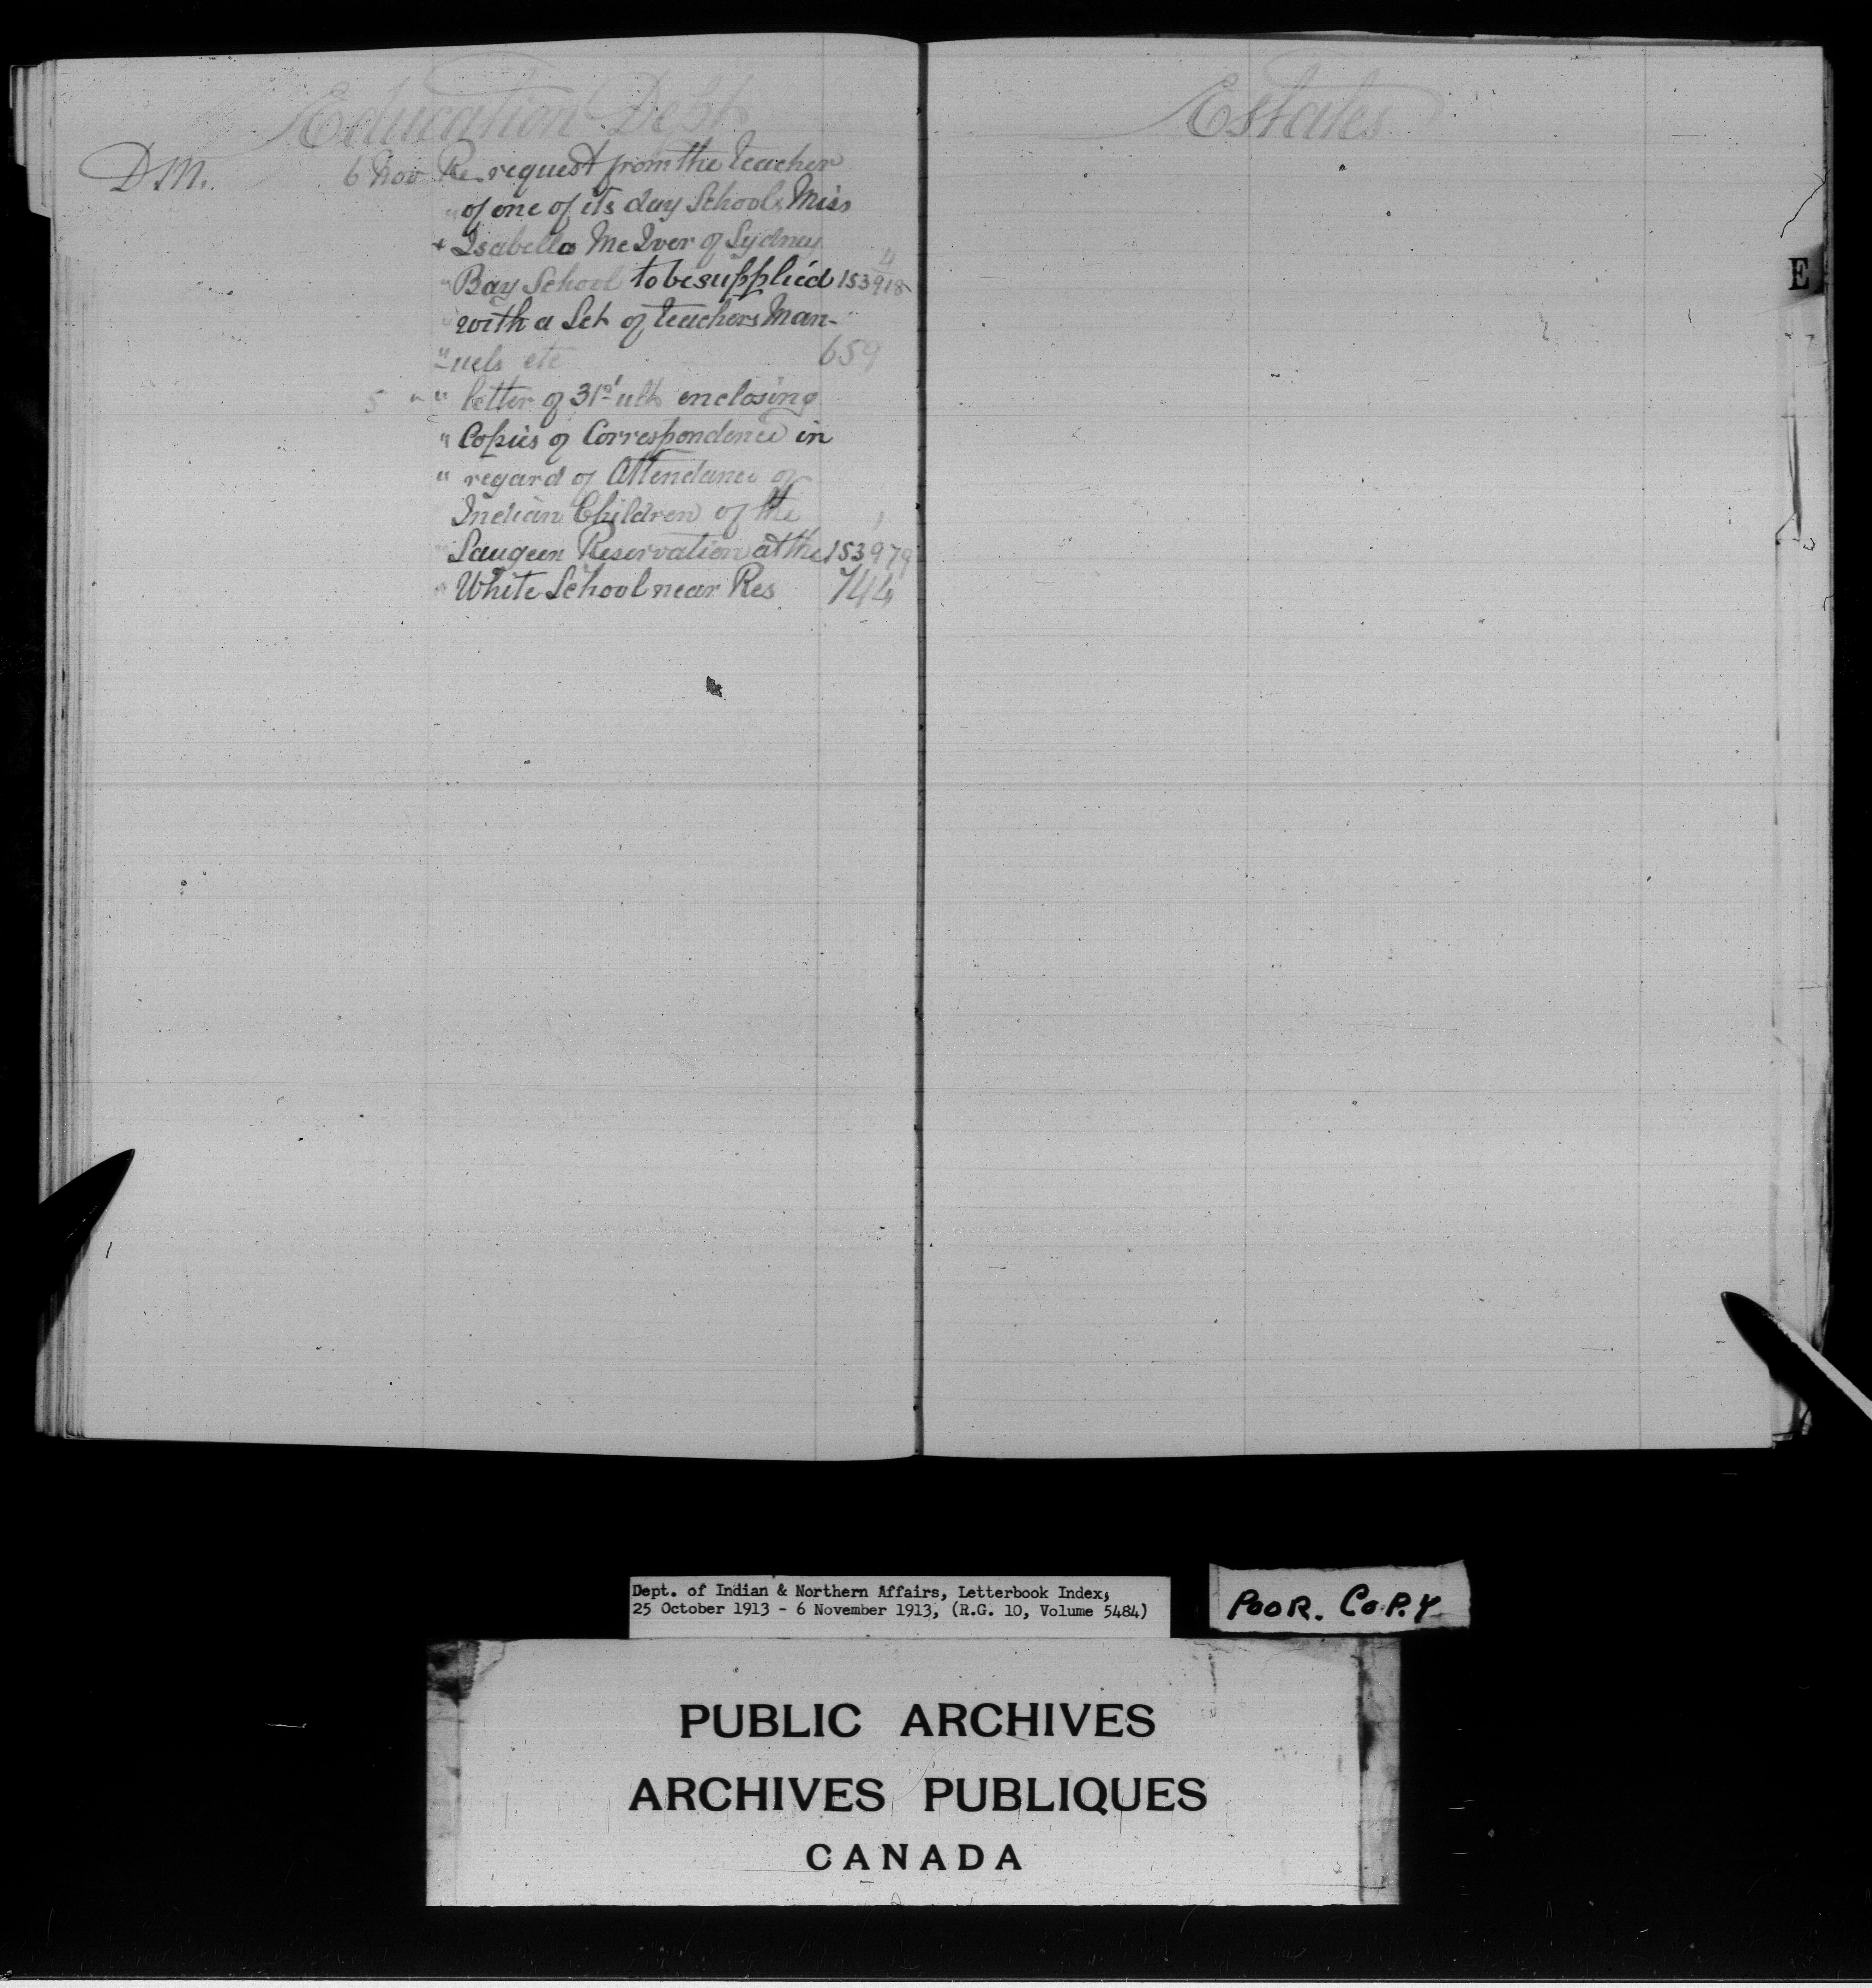 Education Dept
D.M. 6 Nov Re request from the teacher
" of one of its day Schools, Miss
+ Isabella McIver of Sydney
4
" Bay School to be supplied 153918
with a Set of teachers Man-
" uels etc 659
5 " " letter of 31st ult enclosing
" Copies of Correspondence in
" regard of Attendance of
Indian Children of the
" Saugeen Reservation at the 153979
" White School near Res 744
Estates
E
Dept. of Indian & Northern Affairs, Letterbook Index,
25 October 1913 - 6 November 1913, (R.G. 10, Volume 5484)
POOR. COPY
PUBLIC ARCHIVES
ARCHIVES PUBLIQUES
CANADA